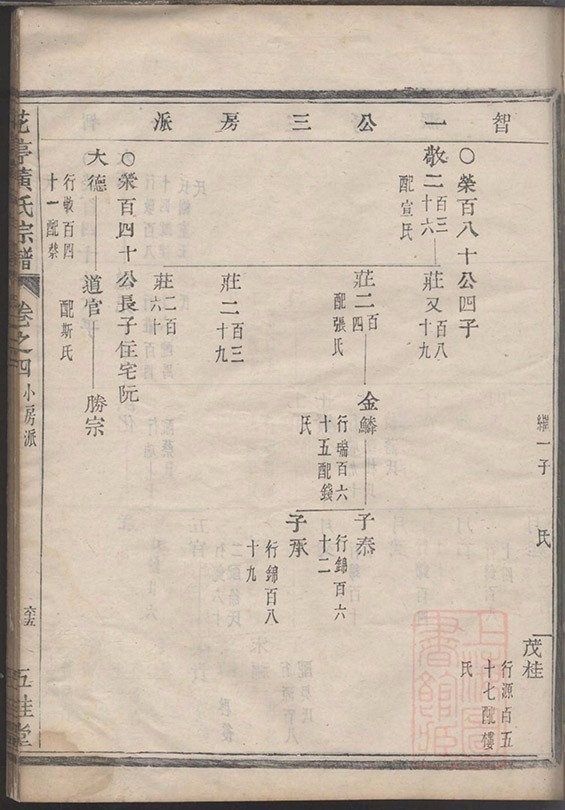 智一公三房派
繼一子
氏
茂桂
行源百五
十七配樓
氏
○榮百八十公四子
敬二百三
十六
配宣氏
莊又百八
十九
莊二百
四
配張氏
金鱗
行瑞百六
十五配錢
氏
子泰
行錦百六
十二
子承
行錦百八
十九
莊二百三
十九
莊二百
六十
○榮百四十公長子住宅阮
大德
行敬百四
十一配蔡
道官
配斯氏
勝宗
花亭黃氏宗譜
卷之四
小房派
五桂堂